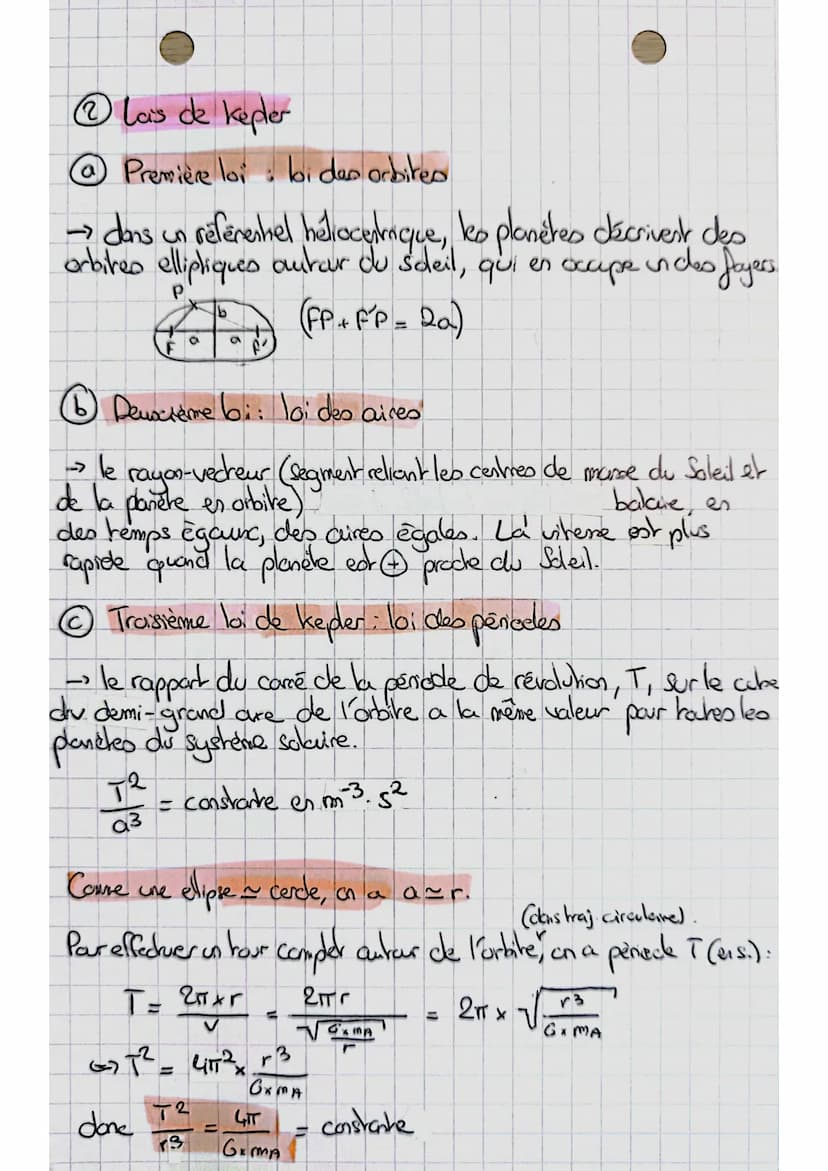 ② Lois de Kepler
ⓐ Première loi : loi des orbites
→ dans un référentiel héliocentrique, les planètes décrivent des
orbites elliptiques autour du Soleil, qui en occupe un des foyers
P
b
F a a F'
(FP + F'P = 2a)
ⓑ Deuxième loi : loi des aires
→ le rayon-vecteur (segment reliant les centres de masse du Soleil et
de la planète en orbite) balaie, en
des temps égaux, des aires égales. La vitesse est plus
rapide quand la planète est ⊕ proche du Soleil.
ⓒ Troisième loi de Kepler : loi des périodes
→ le rapport du carré de la période de révolution, T, sur le cube
du demi-grand axe de l'orbite a la même valeur pour toutes les
planètes du système solaire.
T²/a³ = constante en m⁻³. s²
Comme une ellipse ≃ cercle, on a a ≃ r.
(dans traj. circulaire).
Pour effectuer un tour complet autour de l'orbite, on a période T (en s.) :
T = 2π×r/v = 2πr/√(G×mA/r) = 2π × √(r³/(G×mA))
⇔ T² = 4π² × r³/(G×mA)
donc T²/r³ = 4π/(G×mA) = constante